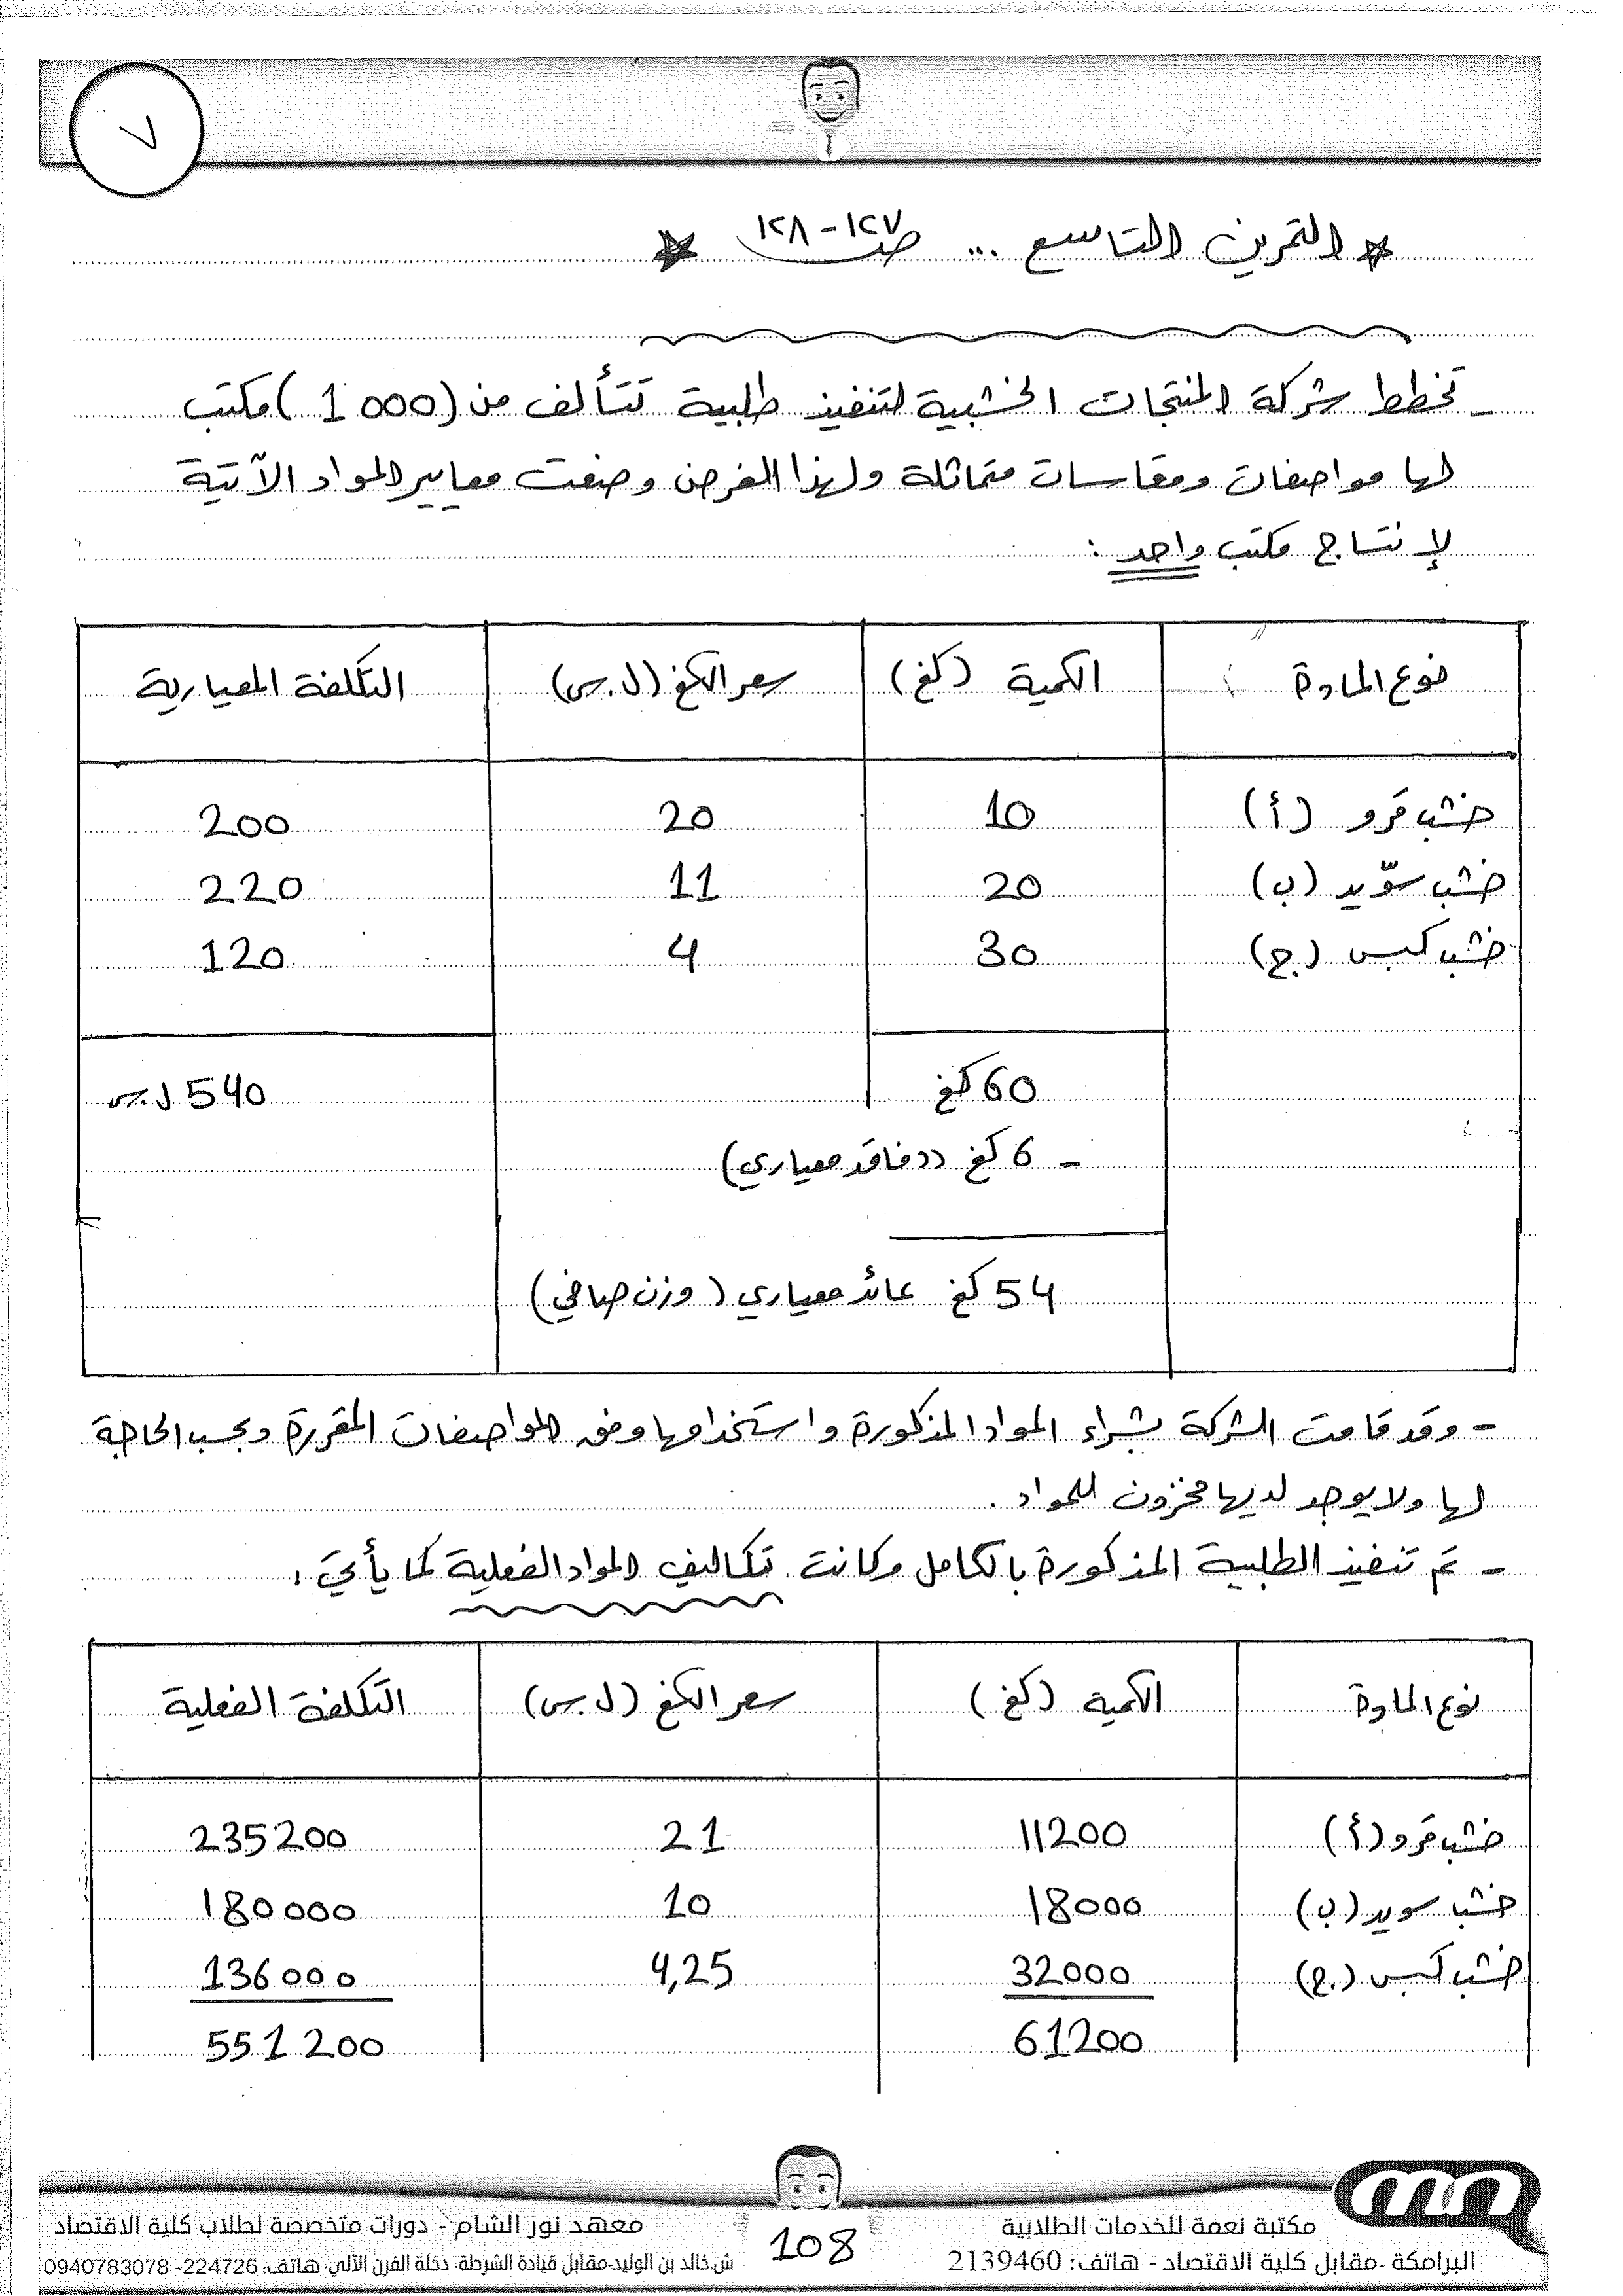 ٧
* التمرين التاسع ... ص ١٢٧-١٢٨ *
- تخطط شركة المنتجات الخشبية لتنفيذ طلبية تتألف من (1000) مكتب
لها مواصفات ومقاسات متماثلة ولهذا الغرض وضعت معايير المواد الآتية
لإنتاج مكتب واحد :
نوع المادة الكمية (كغ) سعر الكغ (ل.س) التكلفة المعيارية
خشب قرو (أ) 10 20 200
خشب سوّيد (ب) 20 11 220
خشب كبس (ج) 30 4 120
60 كغ 540 ل.س
- 6 كغ ((فاقد معياري)
54 كغ عائد معياري (وزن صافي)
- وقد قامت الشركة بشراء المواد المذكورة واستخدامها وفق المواصفات المقررة وبحسب الحاجة
لها ولا يوجد لديها مخزون للمواد .
- تم تنفيذ الطلبية المذكورة بالكامل وكانت تكاليف المواد الفعلية كما يأتي :
نوع المادة الكمية (كغ) سعر الكغ (ل.س) التكلفة الفعلية
خشب قرو (أ) 11200 21 235200
خشب سويد (ب) 18000 10 180000
خشب كبس (ج) 32000 4,25 136000
61200 551200
مكتبة نعمة للخدمات الطلابية
البرامكة -مقابل كلية الاقتصاد - هاتف: 2139460
108
معهد نور الشام - دورات متخصصة لطلاب كلية الاقتصاد
ش.خالد بن الوليد-مقابل قيادة الشرطة- دخلة الفرن الآلي- هاتف: 224726- 0940783078